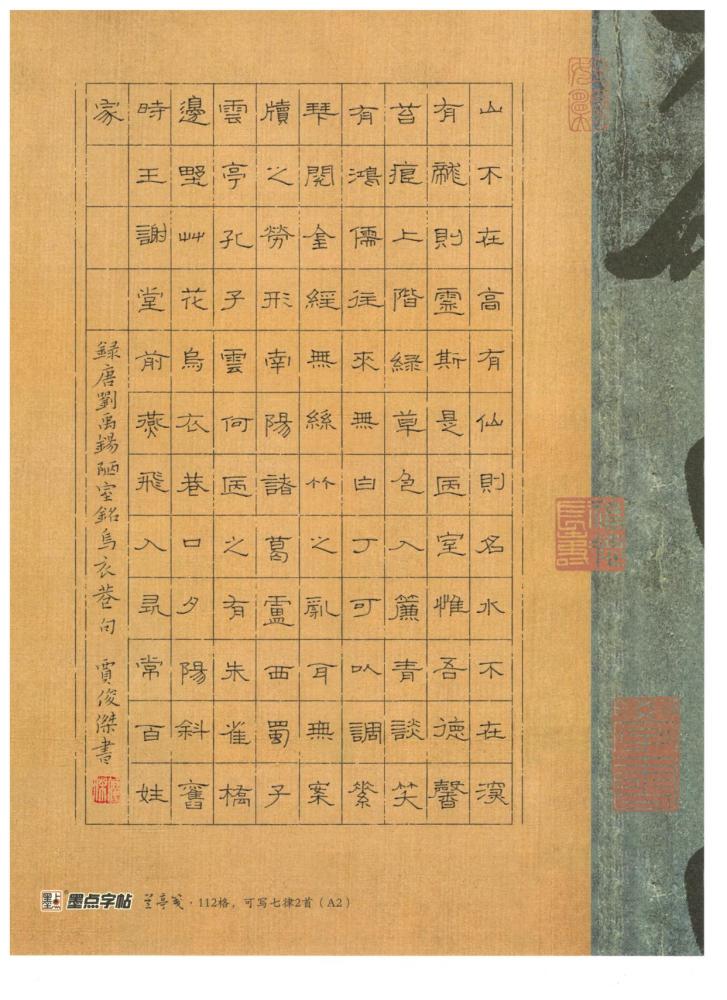 山不在高有仙則名水不在深
有龍則靈斯是陋室惟吾德馨
苔痕上階緑草色入簾青談笑
有鴻儒往來無白丁可以調素
琴閱金經無絲竹之亂耳無案
牘之勞形南陽諸葛盧西蜀子
雲亭孔子雲何陋之有朱雀橋
邊野艸花烏衣巷口夕陽斜舊
時王謝堂前燕飛入尋常百姓
家
録唐劉禹錫陋室銘烏衣巷句 賈俊傑書
墨点字帖 兰亭笺·112格，可写七律2首（A2）